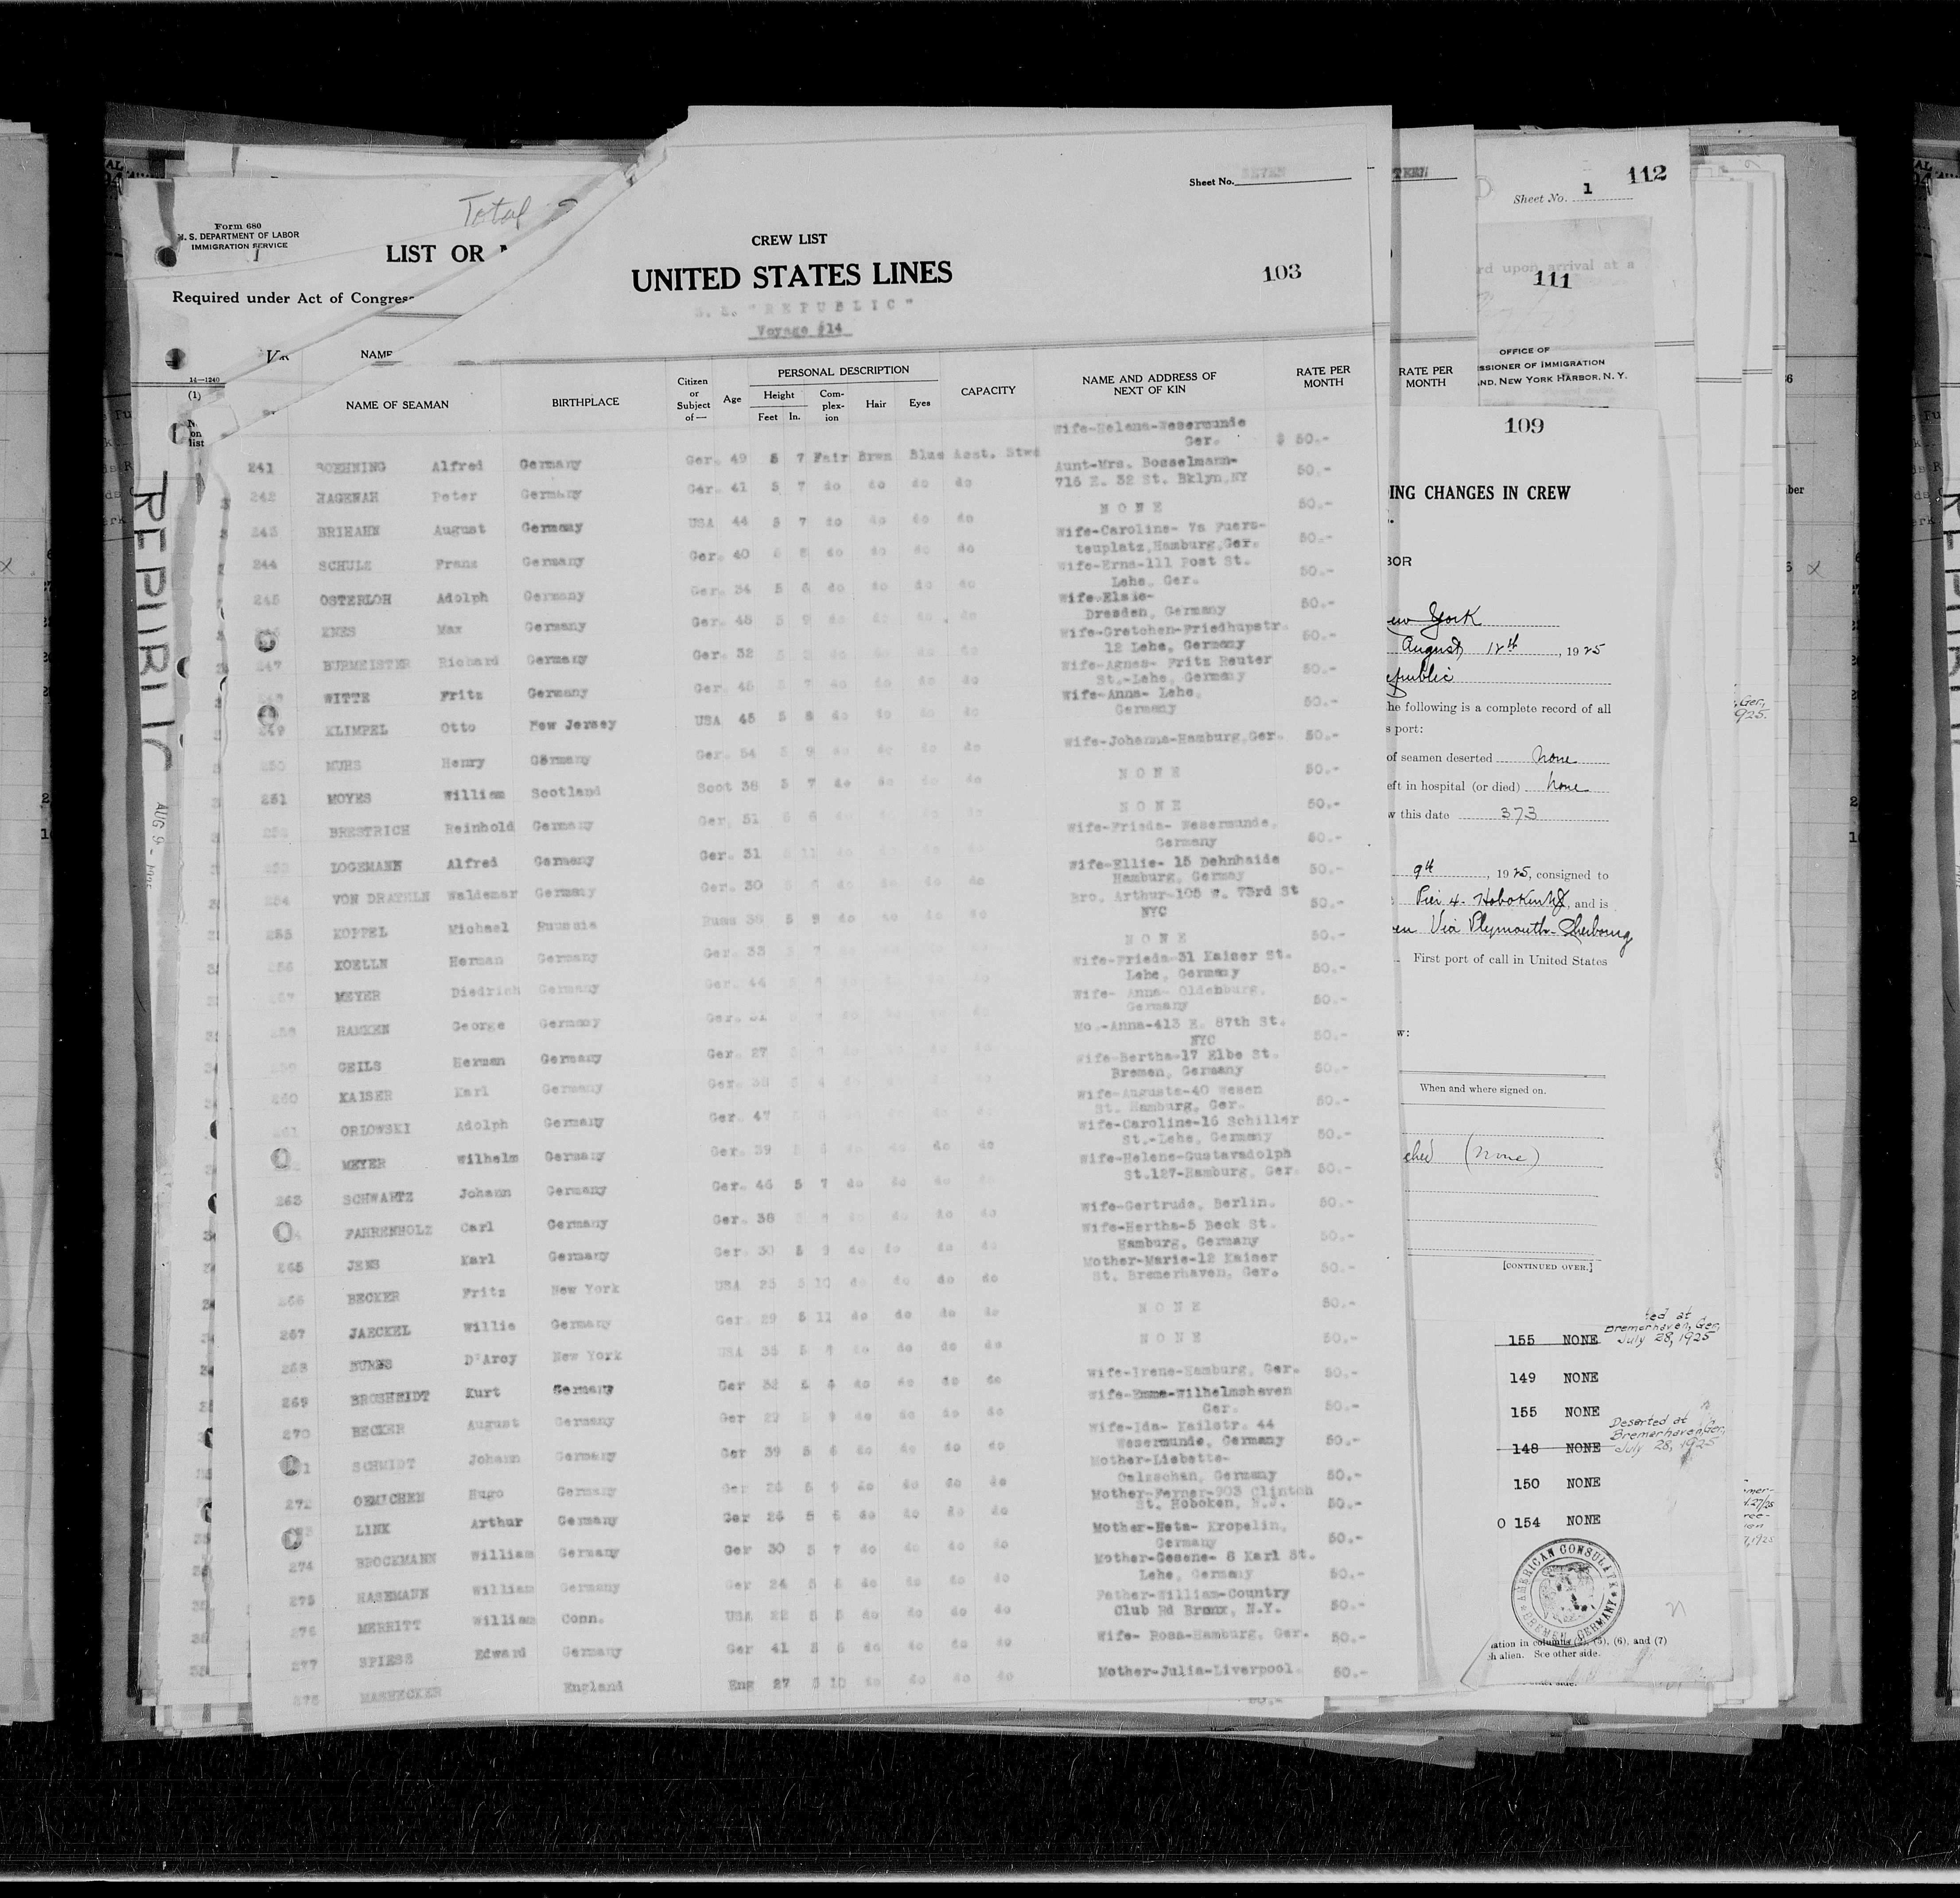 Total
Form 680
U. S. DEPARTMENT OF LABOR
IMMIGRATION SERVICE
LIST OR
Required under Act of Congress
Sheet No. SEVEN
CREW LIST
UNITED STATES LINES
103
S. S. "REPUBLIC"
Voyage #14
NAME OF SEAMAN BIRTHPLACE Citizen or Subject of— Age PERSONAL DESCRIPTION Height Feet In. Com-plex-ion Hair Eyes CAPACITY NAME AND ADDRESS OF NEXT OF KIN RATE PER MONTH
Wife-Helena-Wesermunde
241 BOEHNING Alfred Germany Ger. 49 5 7 Fair Brwn Blue Asst. Stwd Ger. $ 50.-
Aunt-Mrs. Bosselmann-
242 HAGENAH Peter Germany Ger. 41 5 7 do do do do 715 E. 32 St. Bklyn,NY 50.-
243 BRIHAHN August Germany USA 44 5 7 do do do do NONE 50.-
Wife-Caroline- 7a Fuers-
244 SCHULZ Franz Germany Ger. 40 5 8 do do do do tenplatz,Hamburg,Ger. 50.-
Wife-Erna-111 Post St.
245 OSTERLOH Adolph Germany Ger. 34 5 6 do do do do Lehe, Ger. 50.-
Wife-Elsie-
ENES Max Germany Ger. 48 5 9 do do do do Dresden, Germany 50.-
Wife-Gretchen-Friedhupstr.
247 BURMEISTER Richard Germany Ger. 32 do do do do 12 Lehe, Germany 50.-
Wife-Agnes- Fritz Reuter
WITTE Fritz Germany Ger. 45 do do do do St.-Lehe, Germany 50.-
Wife-Anna- Lehe,
249 KLIMPEL Otto New Jersey USA 45 5 8 do do do do Germany 50.-
250 MUHS Henry Germany Ger. 54 5 9 do do do do Wife-Johanna-Hamburg,Ger. 50.-
251 MOYES William Scotland Scot 38 5 7 do do do do NONE 50.-
252 BRESTRICH Reinhold Germany Ger. 51 5 6 do do do do NONE 50.-
Wife-Frieda- Wesermunde,
253 LOGEMANN Alfred Germany Ger. 31 5 11 do do do do Germany 50.-
Wife-Ellie- 15 Dehnhaide
254 VON DRATHLN Waldemar Germany Ger. 30 do do do do Hamburg, Germay 50.-
Bro. Arthur-105 W. 73rd St
255 KOPPEL Michael Ruussia Russ 38 5 9 do do do do NYC 50.-
256 KOELLN Herman Germany Ger. 33 NONE 50.-
Wife-Frieda-31 Kaiser St.
257 MEYER Diedrich Germany Ger. 44 Lehe, Germany 50.-
Wife- Anna- Oldenburg,
258 HAMKEN George Germany Ger. Germany 50.-
Mo.-Anna-413 E. 87th St.
259 GEILS Herman Germany Ger. 27 NYC 50.-
Wife-Bertha-17 Elbe St.
260 KAISER Karl Germany Ger. 38 Bremen, Germany 50.-
Wife-Augusta-40 Wesen
261 ORLOWSKI Adolph Germany Ger. 47 St. Hamburg, Ger. 50.-
Wife-Caroline-16 Schiller
MEYER Wilhelm Germany Ger. 39 do do do do St.-Lehe, Germany 50.-
Wife-Helene-Gustavadolph
263 SCHWARTZ Johann Germany Ger. 46 5 7 do do do do St.127-Hamburg, Ger. 50.-
FAHRENHOLZ Carl Germany Ger. 38 do do do do Wife-Gertrude, Berlin. 50.-
Wife-Hertha-5 Beck St.
265 JENS Karl Germany Ger. 30 5 9 do do do do Hamburg, Germany 50.-
Mother-Marie-12 Kaiser
266 BECKER Fritz New York USA 25 5 10 do do do do St. Bremerhaven, Ger. 50.-
267 JAECKEL Willie Germany Ger 29 5 11 do do do do NONE 50.-
268 BURNS D'Arcy New York USA 35 do do do do NONE 50.-
269 BROSHEIDT Kurt Germany Ger 32 do do do do Wife-Irene-Hamburg, Ger. 50.-
Wife-Emma-Wilhelmshaven
270 BECKER August Germany Ger 29 5 9 do do do do Ger. 50.-
Wife-Ida- Kailstr. 44
SCHMIDT Johann Germany Ger 39 5 6 do do do do Wesermunde, Germany 50.-
Mother-Liebette-
272 OEMICHEN Hugo Germany Ger 26 do do do do Oelzschan, Germany 50.-
Mother-Ferner-903 Clinton
LINK Arthur Germany Ger 26 5 5 do do do do St. Hoboken, N.J. 50.-
Mother-Meta- Kropelin,
274 BROCKMANN William Germany Ger 30 5 7 do do do do Germany 50.-
Mother-Gesene- 8 Karl St.
275 HASEMANN William Germany Ger 24 5 6 do do do do Lehe, Germany 50.-
Father-William-Country
276 MERRITT William Conn. USA 22 5 5 do do do do Club Rd Bronx, N.Y. 50.-
277 SPIESS Edward Germany Ger 41 5 6 do do do do Wife- Rosa-Hamburg, Ger. 50.-
278 MASHECKER England Eng 27 5 10 do do do do Mother-Julia-Liverpool. 50.-
RATE PER MONTH
Sheet No. 1
112
rd upon arrival at a
111
OFFICE OF
SSIONER OF IMMIGRATION
ND, NEW YORK HARBOR, N. Y.
109
ING CHANGES IN CREW
BOR
ew York
August 12th, 1925
epublic
he following is a complete record of all
s port:
of seamen deserted none
eft in hospital (or died) none
w this date 373
9th, 1925, consigned to
Pier 4. Hoboken NJ, and is
en Via Plymouth-Cherbourg
First port of call in United States
w:
When and where signed on.
ched (none)
[CONTINUED OVER.]
ted at
Bremerhaven, Ger,
July 28, 1925
155 NONE
149 NONE
155 NONE
Deserted at
Bremerhaven, Ger,
July 28, 1925
148 NONE
150 NONE
0 154 NONE
AMERICAN CONSULATE
BREMEN GERMANY
ation in columns (2), (5), (6), and (7)
ch alien. See other side.
REPUBLIC
AUG 9 - 1925